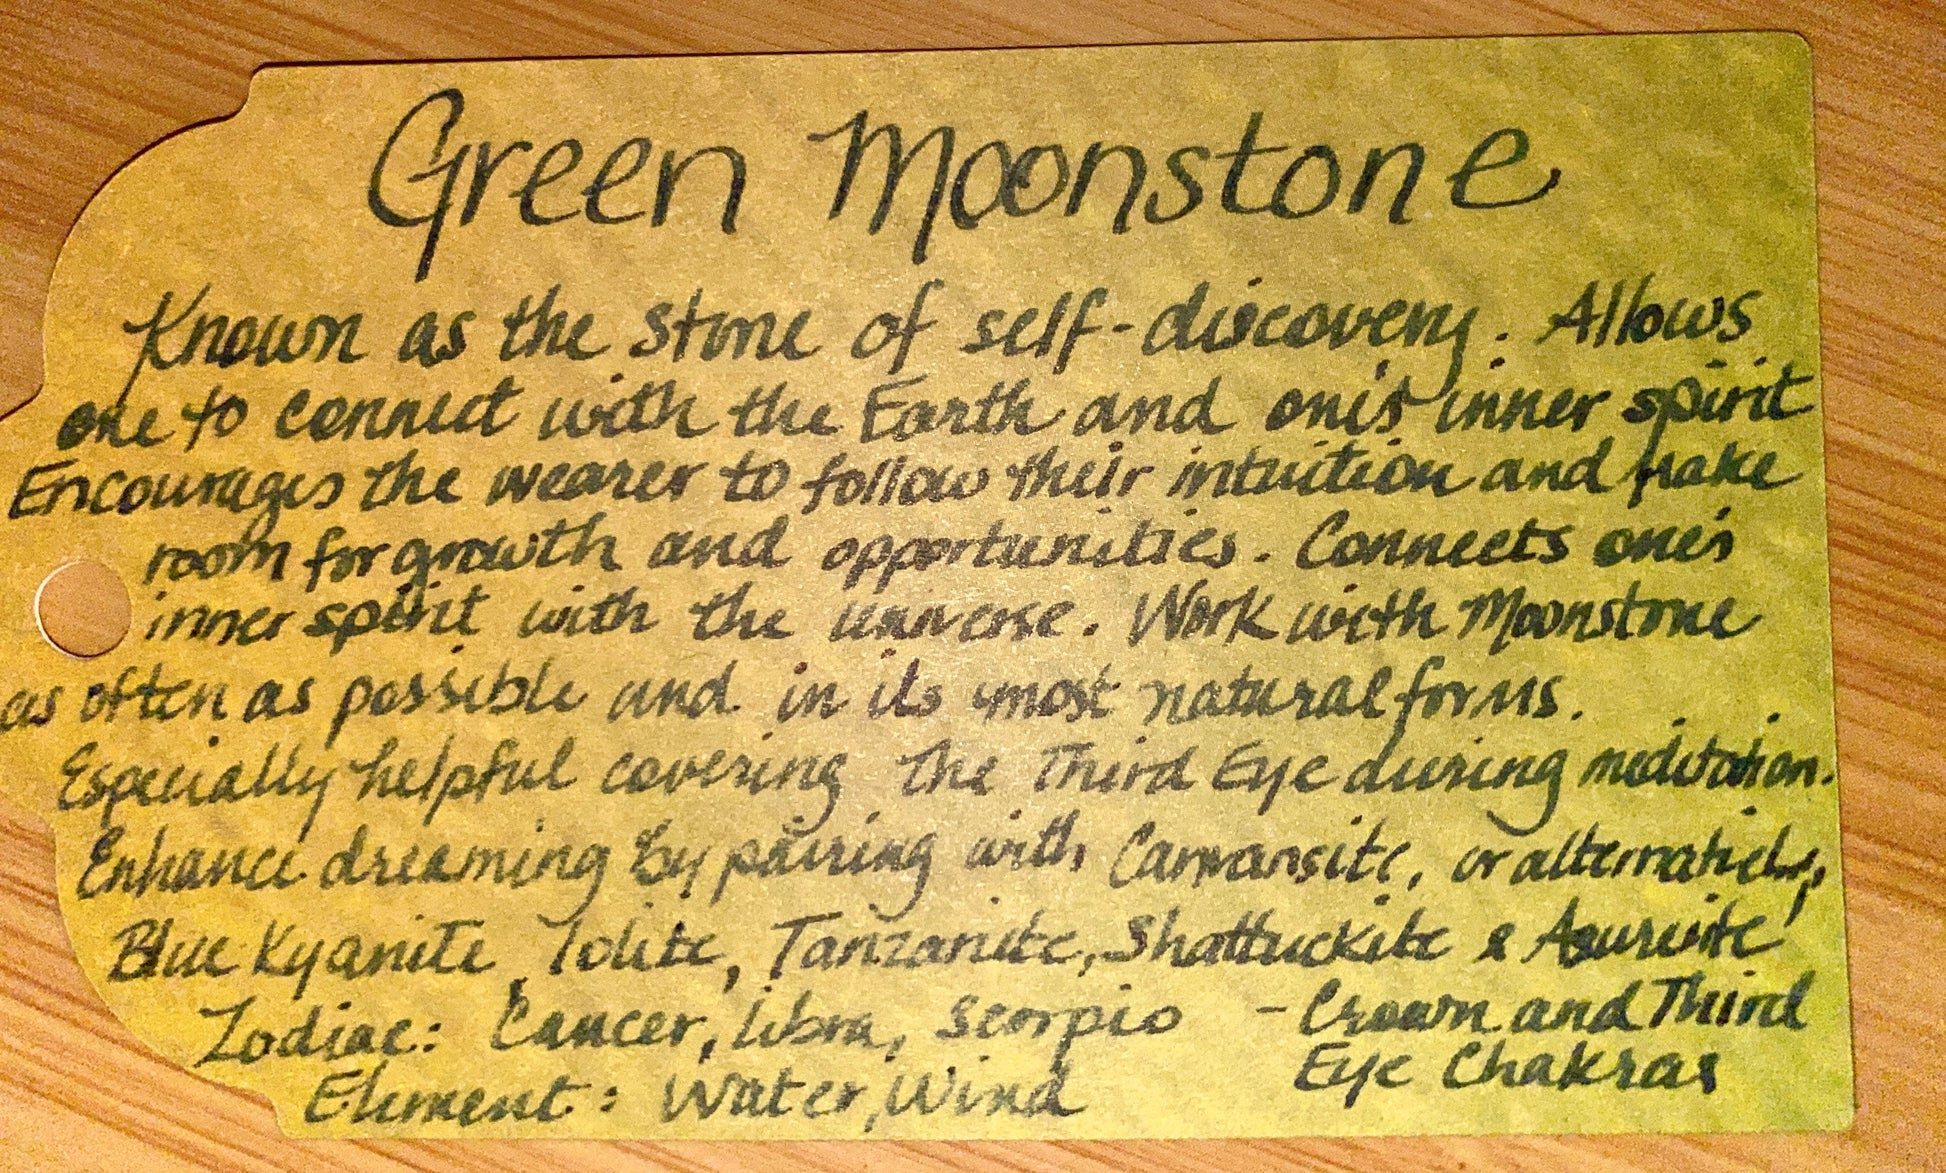 Green Moonstone
Known as the stone of self-discovery. Allows
one to connect with the Earth and one's inner spirit
Encourages the wearer to follow their intuition and make
room for growth and opportunities. Connects one's
inner spirit with the universe. Work with Moonstone
as often as possible and in its most natural forms.
Especially helpful covering the Third Eye during meditation.
Enhance dreaming by pairing with Cavansite, or alternatively,
Blue Kyanite, Iolite, Tanzanite, Shattuckite & Azurite
Zodiac: Cancer, Libra, Scorpio - Crown and Third
Eye Chakras
Element: Water, Wind